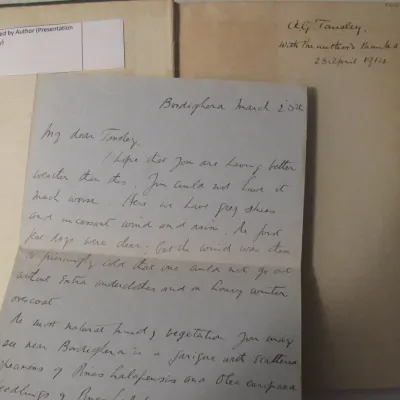 ed by Author (Presentation
y)
A.G. Tansley.
With the author's thanks
23 April 1912
Bordighera March 25th
My dear Tansley,
I hope that you are having better
weather than this. You could not have it
much worse. Here we have grey skies
and incessant wind and rain. The first
few days were clear: but the wind was then
so piercingly cold that one could not go out
without extra underclothes and a heavy winter
overcoat
The most natural kind of vegetation you may
see near Bordighera is a garigue with scattered
specimens of Pinus halepensis and Olea europaea
seedlings of Pinus